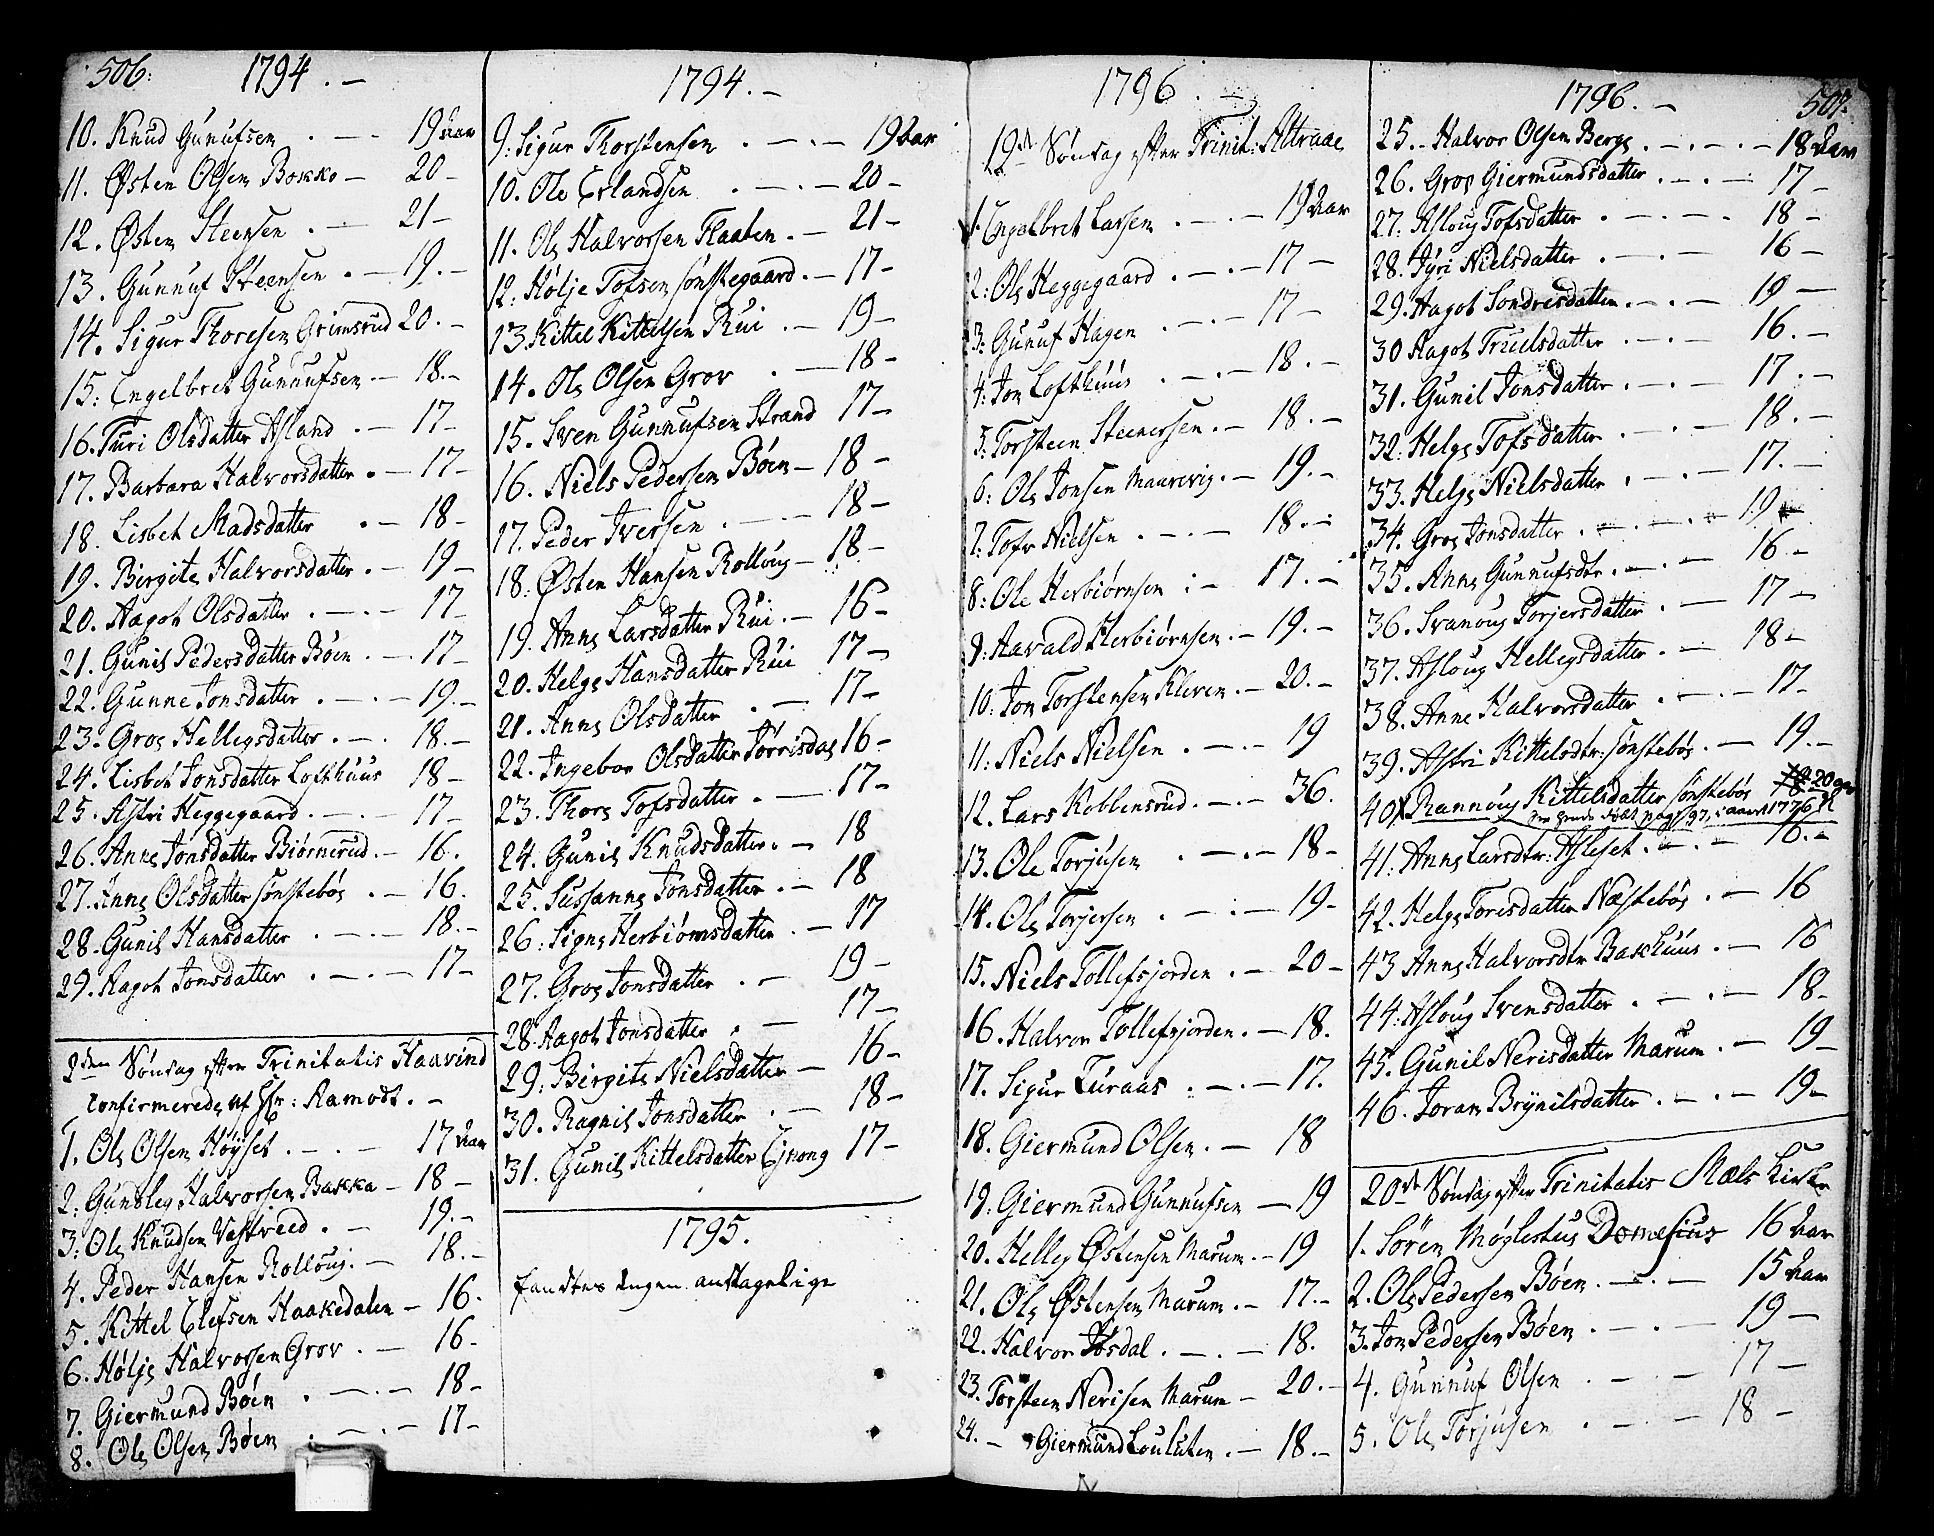 506.
1794. –
10. Knud Gunufsen . – . 19 Aar
11. Østen Olsen Bokko – 20 –
12. Østen Steensen . – 21 –
13. Gunnuf Steensen . – 19. –
14. Sigur Thoresen Grimsrud 20. –
15: Engelbret Gunnufsen – 18. –
16. Turi Olsdatter Asland . – 17 –
17. Barbara Halvorsdatter . – 17 –
18. Lisbet Madsdatter . – 18 –
19. Birgite Halvorsdatter . – 19 –
20. Aagot Olsdatter . – . – 17
21. Gunil Pedersdatter Bøen . – . 17 –
22. Gunne Jonsdatter . – . – 19. –
23. Groe Hellegsdatter . – . 18. –
24. Lisbet Jonsdatter Lofthuus 18 –
25. Astri Heggegaard . – . – 17 –
26. Anne Jonsdatter Biørnerud . – 16.
27. Anne Olsdatter Sønstebøe . – 16.
28. Gunil Hansdatter . – . – 18. –
29. Aagot Jonsdatter . – . – 17 –
2den Søndag efter Trinitatis Haavind
confirmerede af Hr: Aamodt. –
1. Ole Olsen Høyset . – . – 17 Aar
2. Gundleg Halvorsen Bakka – 18 –
3: Ole Knudsen Vastveed . – 19. –
4. Peder Hansen Rolloug . – 18. –
5. Kittel Elefsen Haakedalen – 16.
6. Hølje Halvorsen Grov . – 16 –
7. Giermund Bøen . – . – 18 –
8. Ole Olsen Bøen . – . – 17 –
1794. –
9: Sigur Thorstensen . – . – 19 Aar
10. Ole Erlandsen . – . – 20 –
11. Ole Halvorsen Flaaten . – 21 –
12: Hølje Tofsen Sønstegaard . – 17 –
13. Kittel Kittelsen Rui . – 19 –
14. Ole Olsen Grov . – 18 –
15. Sven Gunnufsen Strand 17 –
16. Niels Pedersen Bøen – 18 –
17. Peder Iversen . – . – 18 –
18: Østen Hansen Rolloug – 18 –
19. Anne Larsdatter Rui . – 16 –
20. Helge Hansdatter Rui 17 –
21. Anne Olsdatter . – . 17 –
22. Ingebor Olsdatter Jørrisdag 16 –
23. Thore Tofsdatter . – 17 –
24. Gunil Knudsdatter . – 18
25. Sussanne Jonsdatter . – 18
26: Signe Herbiørnsdatter . – 17
27. Groe Jonsdatter . – 19 –
28. Aagot Jonsdatter . – 17 –
29: Birgite Nielsdatter – 16 –
30. Ragnil Jonsdatter . – 18 –
31. Gunil Kittelsdatter Ejnong 17 –
1795.
fandtes ingen antagelige
1796 . –
19de Søndag efter Trinit: Attraae
1. Engelbret Larsen . – . – 19 Aar
2: Ole Heggegaard . – . – 17 –
3: Gunuf Hagen . – . – 17 –
4: Jon Lofthuus . – . – 18. –
5: Torsteen Steenersen . – 18. –
6: Ole Jonsen Maurevig . – 19. –
7: Tofv Nielsen . – . – 18. –
8: Ole Herbiørnsen : – 17. –
9: Aavald Herbiørnsen . – 19. –
10: Jon Torstensen Kleven . – 20. –
11: Niels Nielsen . – . – 19
12. Lars Koblensrud . – . – 36.
13. Ole Torjusen . – . – 18 –
14. Ole Torjersen . – . – 19 –
15. Niels Tollefsjorden . – 20 –
16. Halvor Tollefsjorden . – 18.
17. Sigur Luraas . – . – 17.
18. Giermund Olsen . – 18
19: Giermund Gunnufsen – 19
20. Helleg Østensen Marum . – 19
21. Ole Østensen Marum . – 17. –
22. Halvor Jøsdal . – . – 18.
23. Torsteen Nerisen Marum – 20. –
24. – Giermund Loulsten . – 18. –
1796. –
507.
25. – Halvor Olsen Berge . – . – 18 Aar
26. Groe Giermundsdatter . – . 17 –
27. Asloug Tofsdatter . – . – . 18 –
28. Jyri Nielsdatter . – . – 16 –
29. Aagot Sondresdatter . – . – 19 –
30 Aagot Truelsdatter . – . – 16. –
31. Gunil Jonsdatter . – . – 17. –
32. Helge Tofsdatter . – . – 18. –
33. Helge Nielsdatter . – . – 17. –
34. Groe Jonsdatter . – . – 19
35. Anne Gunnufsdtr . – . – 16 –
36. Svanoug Torjersdatter . – 17 –
37. Asloug Hellegsdatter . – 18 –
38. Anne Halvorsdatter . – . – 17 –
39. Astri Kittelsdtr: Sønstebøe . – 19. –
40 Rannoug Kittelsdatter Sønstebøe 18 20
pag 197, i aaret 1776
41. Anne Larsdtr: Asleset . – . – 16. –
42. Helge Torisdatter Næstebøe . – 16
43 Anne Halvorsdtr Bakhuus . – 16
44: Asloug Svensdatter . – . – 18 –
45. Gunil Nerisdatter Marum . – 19 –
46. Joran Brynilsdatter . – . – 19 –
20de Søndag efter Trinitatis Mæls Kirke
1. Søren Møglestus Domesius 16 Aar
2. Ole Pedersen Bøen . – . – 15 Aar
3. Jon Pedersen Bøen . – . – 19 –
4. Gunnuf Olsen . – . – 17 –
5. Ole Torjusen . – . – 18 –